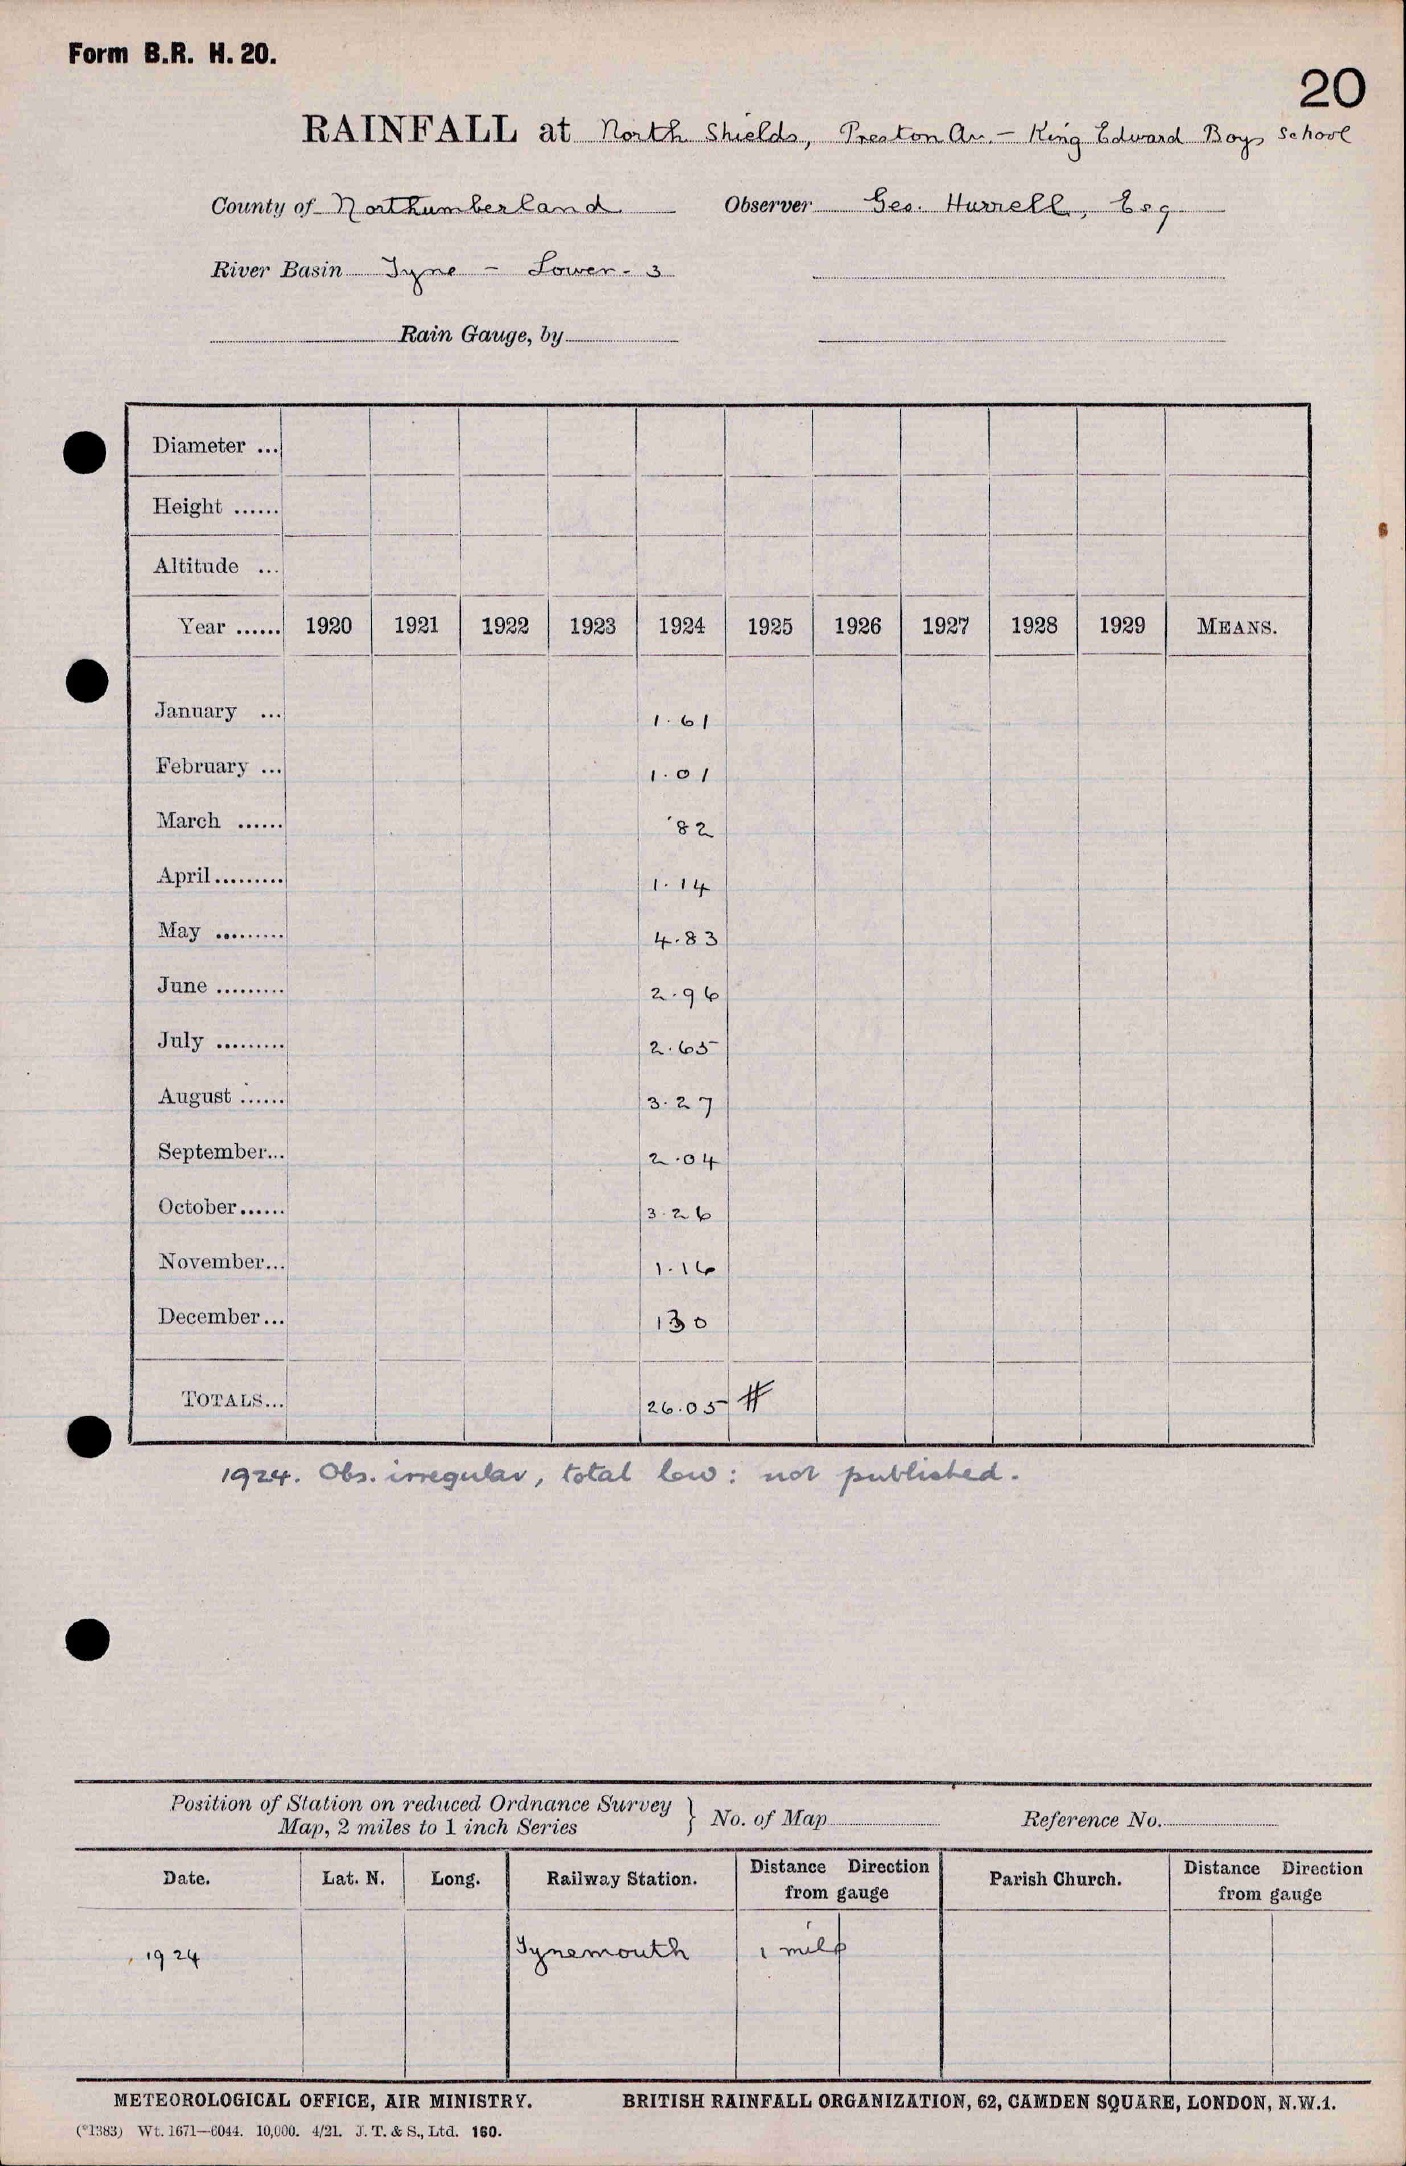 Form B.R. H. 20.
20
RAINFALL at North Shields, Preston Av. – King Edward Boys School
County of Northumberland Observer Geo. Hurrell, Esq.
River Basin Tyne – Lower - 3
Rain Gauge, by
Diameter ...
Height ......
Altitude ...
Year ...... 1920 1921 1922 1923 1924 1925 1926 1927 1928 1929 MEANS.
January ... 1.61
February ... 1.01
March ...... .82
April ......... 1.14
May ......... 4.83
June ......... 2.96
July ......... 2.65
August ...... 3.27
September... 2.04
October...... 3.26
November... 1.16
December... 130
TOTALS... 26.05 #
1924. Obs. irregular, total low: not published.
Position of Station on reduced Ordnance Survey
Map, 2 miles to 1 inch Series } No. of Map Reference No.
Date. Lat. N. Long. Railway Station. Distance Direction from gauge Parish Church. Distance Direction from gauge
1924 Tynemouth 1 mile
METEOROLOGICAL OFFICE, AIR MINISTRY. BRITISH RAINFALL ORGANIZATION, 62, CAMDEN SQUARE, LONDON, N.W.1.
(*1383) Wt. 1671—6044. 10,000. 4/21. J. T. & S., Ltd. 160.